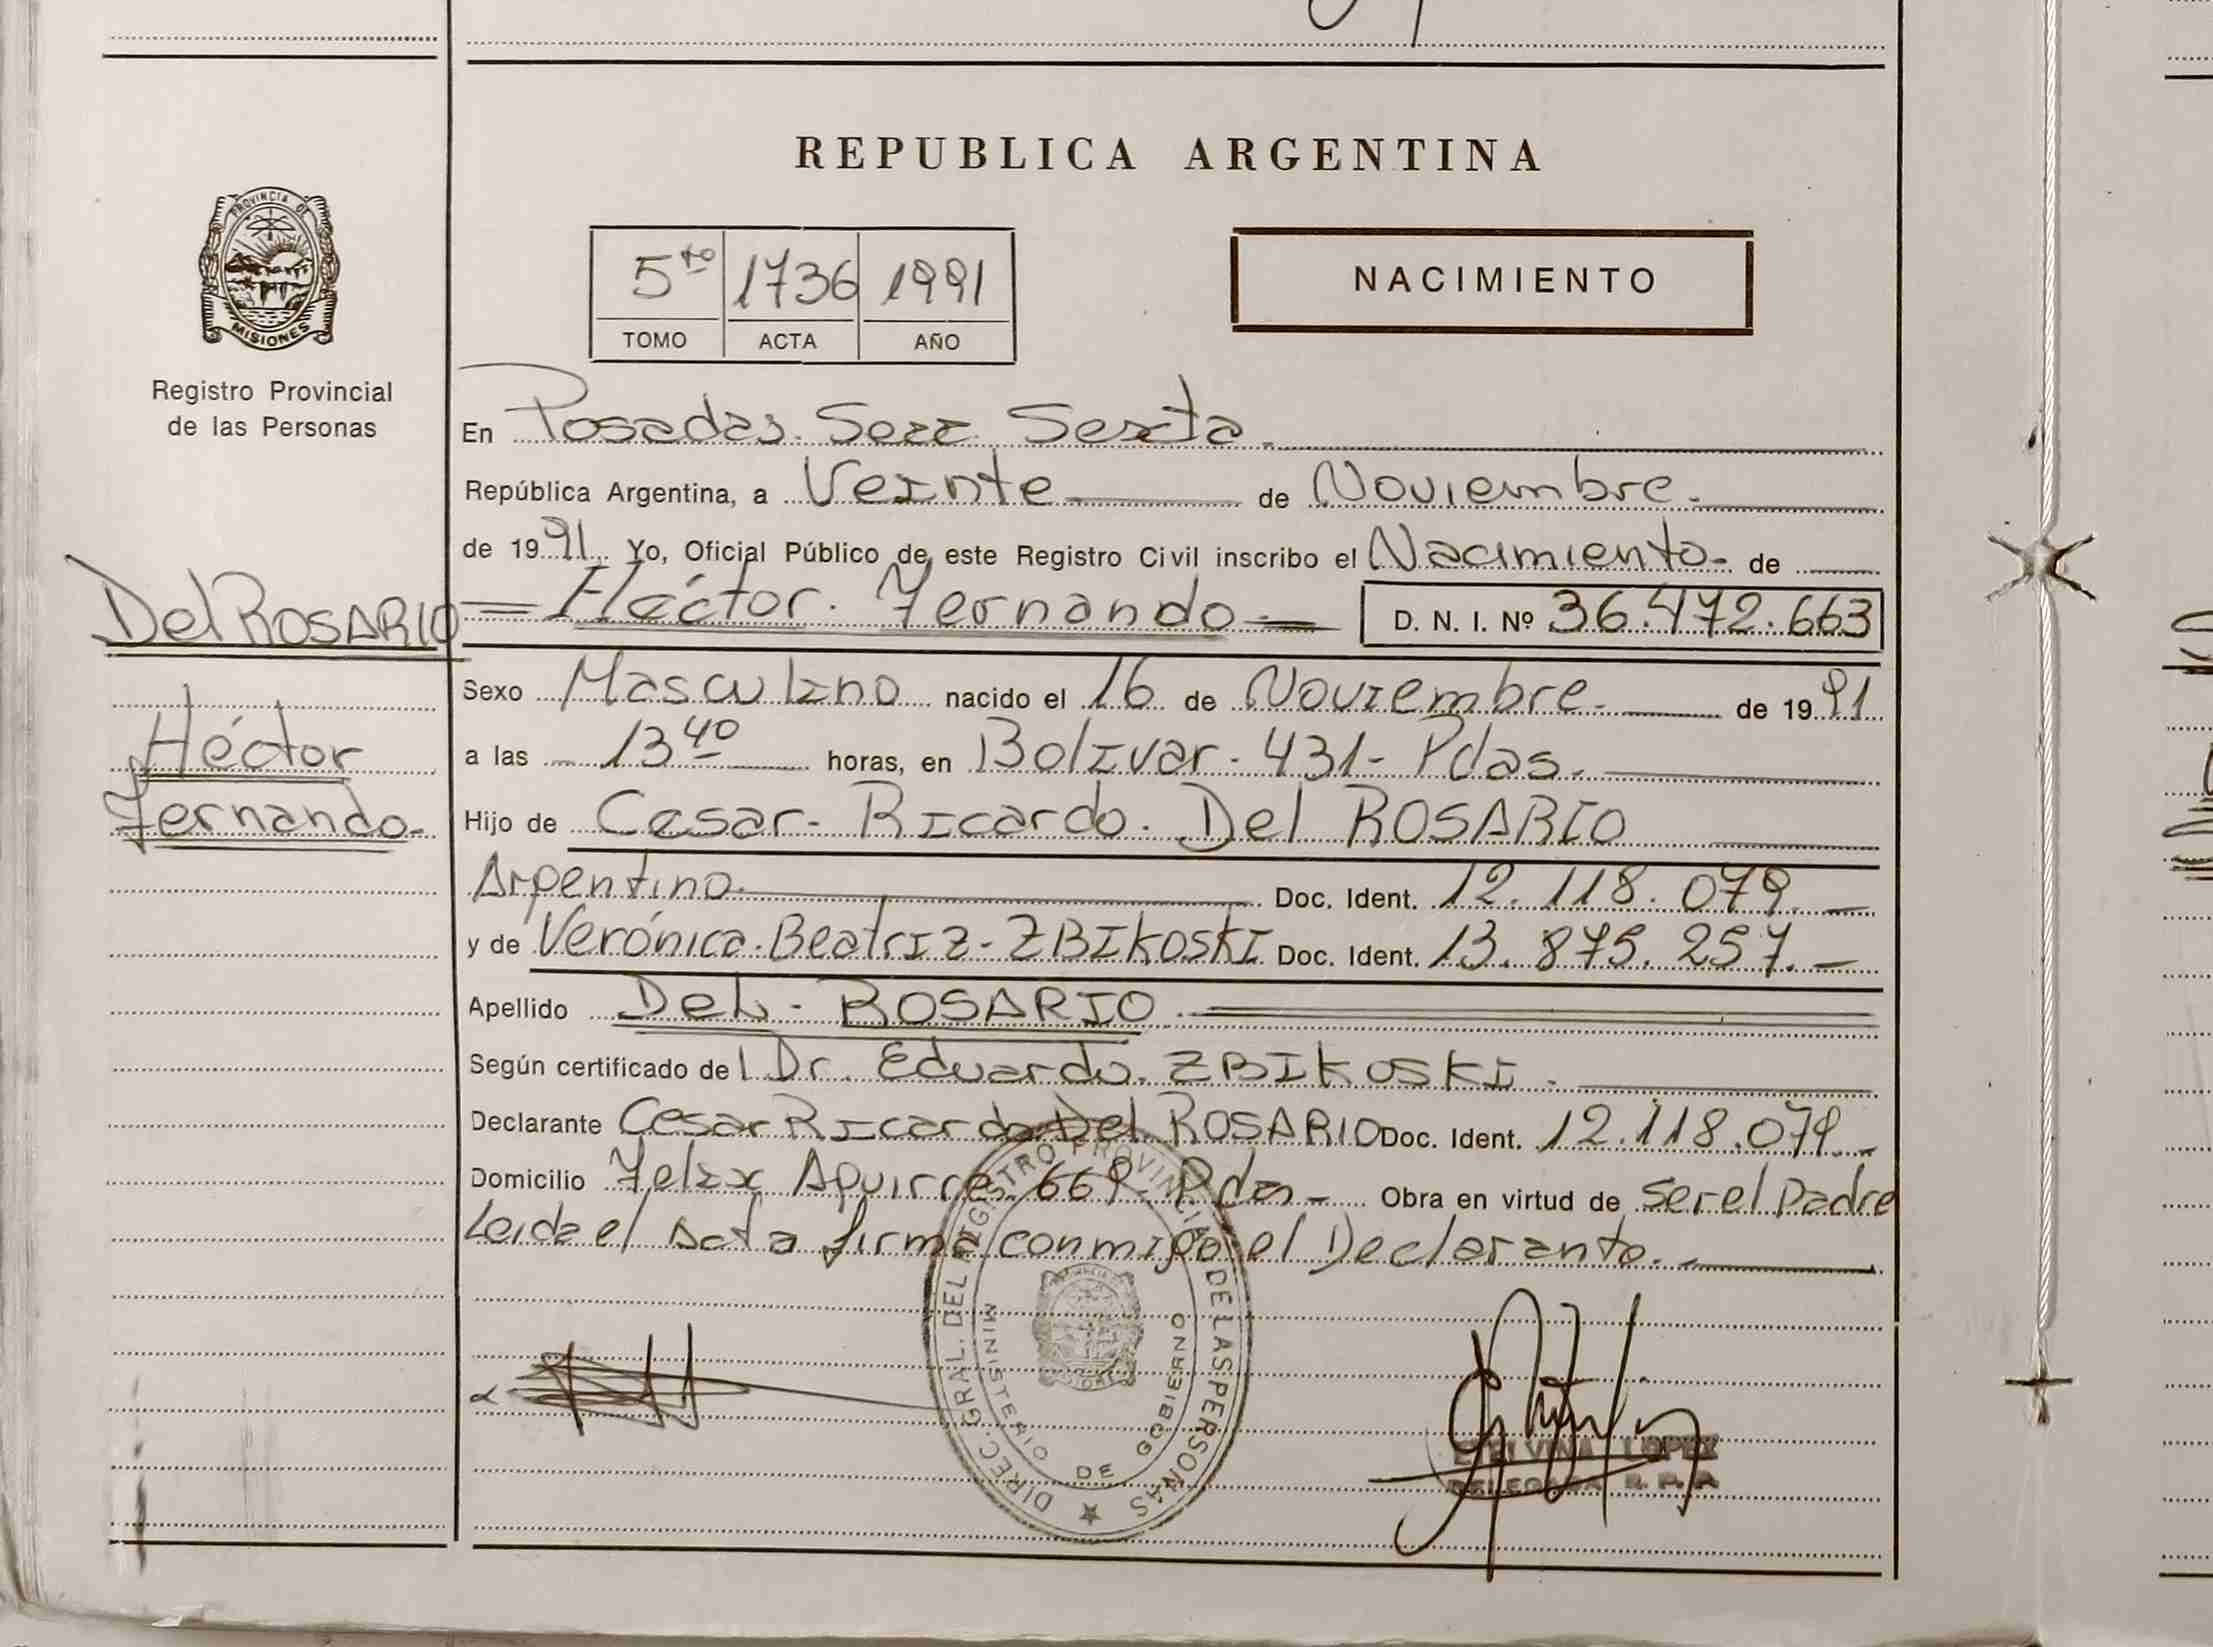 REPUBLICA ARGENTINA
PROVINCIA DE
MISIONES
Registro Provincial
de las Personas
5to 1736 1991
TOMO ACTA AÑO
NACIMIENTO
En Posadas. Secc Sexta.
República Argentina, a Veinte de Noviembre.
de 1991. Yo, Oficial Público de este Registro Civil inscribo el Nacimiento- de
Del ROSARIO
Héctor. Fernando. D. N. I. Nº 36.472.663
Héctor
Fernando.
Sexo Masculino nacido el 16 de Noviembre. de 1991
a las 13 40 horas, en Bolivar - 431 - Pdas.
Hijo de Cesar- Ricardo. Del ROSARIO
Argentino. Doc. Ident. 12.118.079.-
y de Verónica. Beatriz - ZBIKOSKI Doc. Ident. 13.875.257.-
Apellido DEL - ROSARIO
Según certificado del Dr. Eduardo. ZBIKOSKI.
Declarante Cesar Ricardo Del ROSARIO Doc. Ident. 12.118.079.-
Domicilio Felix Aguirre 669 - Pdas - Obra en virtud de ser el Padre
Leida el Acta firma conmigo el Declarante.
DIREC. GRAL. DEL REGISTRO PROVINCIAL DE LAS PERSONAS
MINISTERIO DE GOBIERNO
ETELVINA LOPEZ
DELEGADA R. P. P.